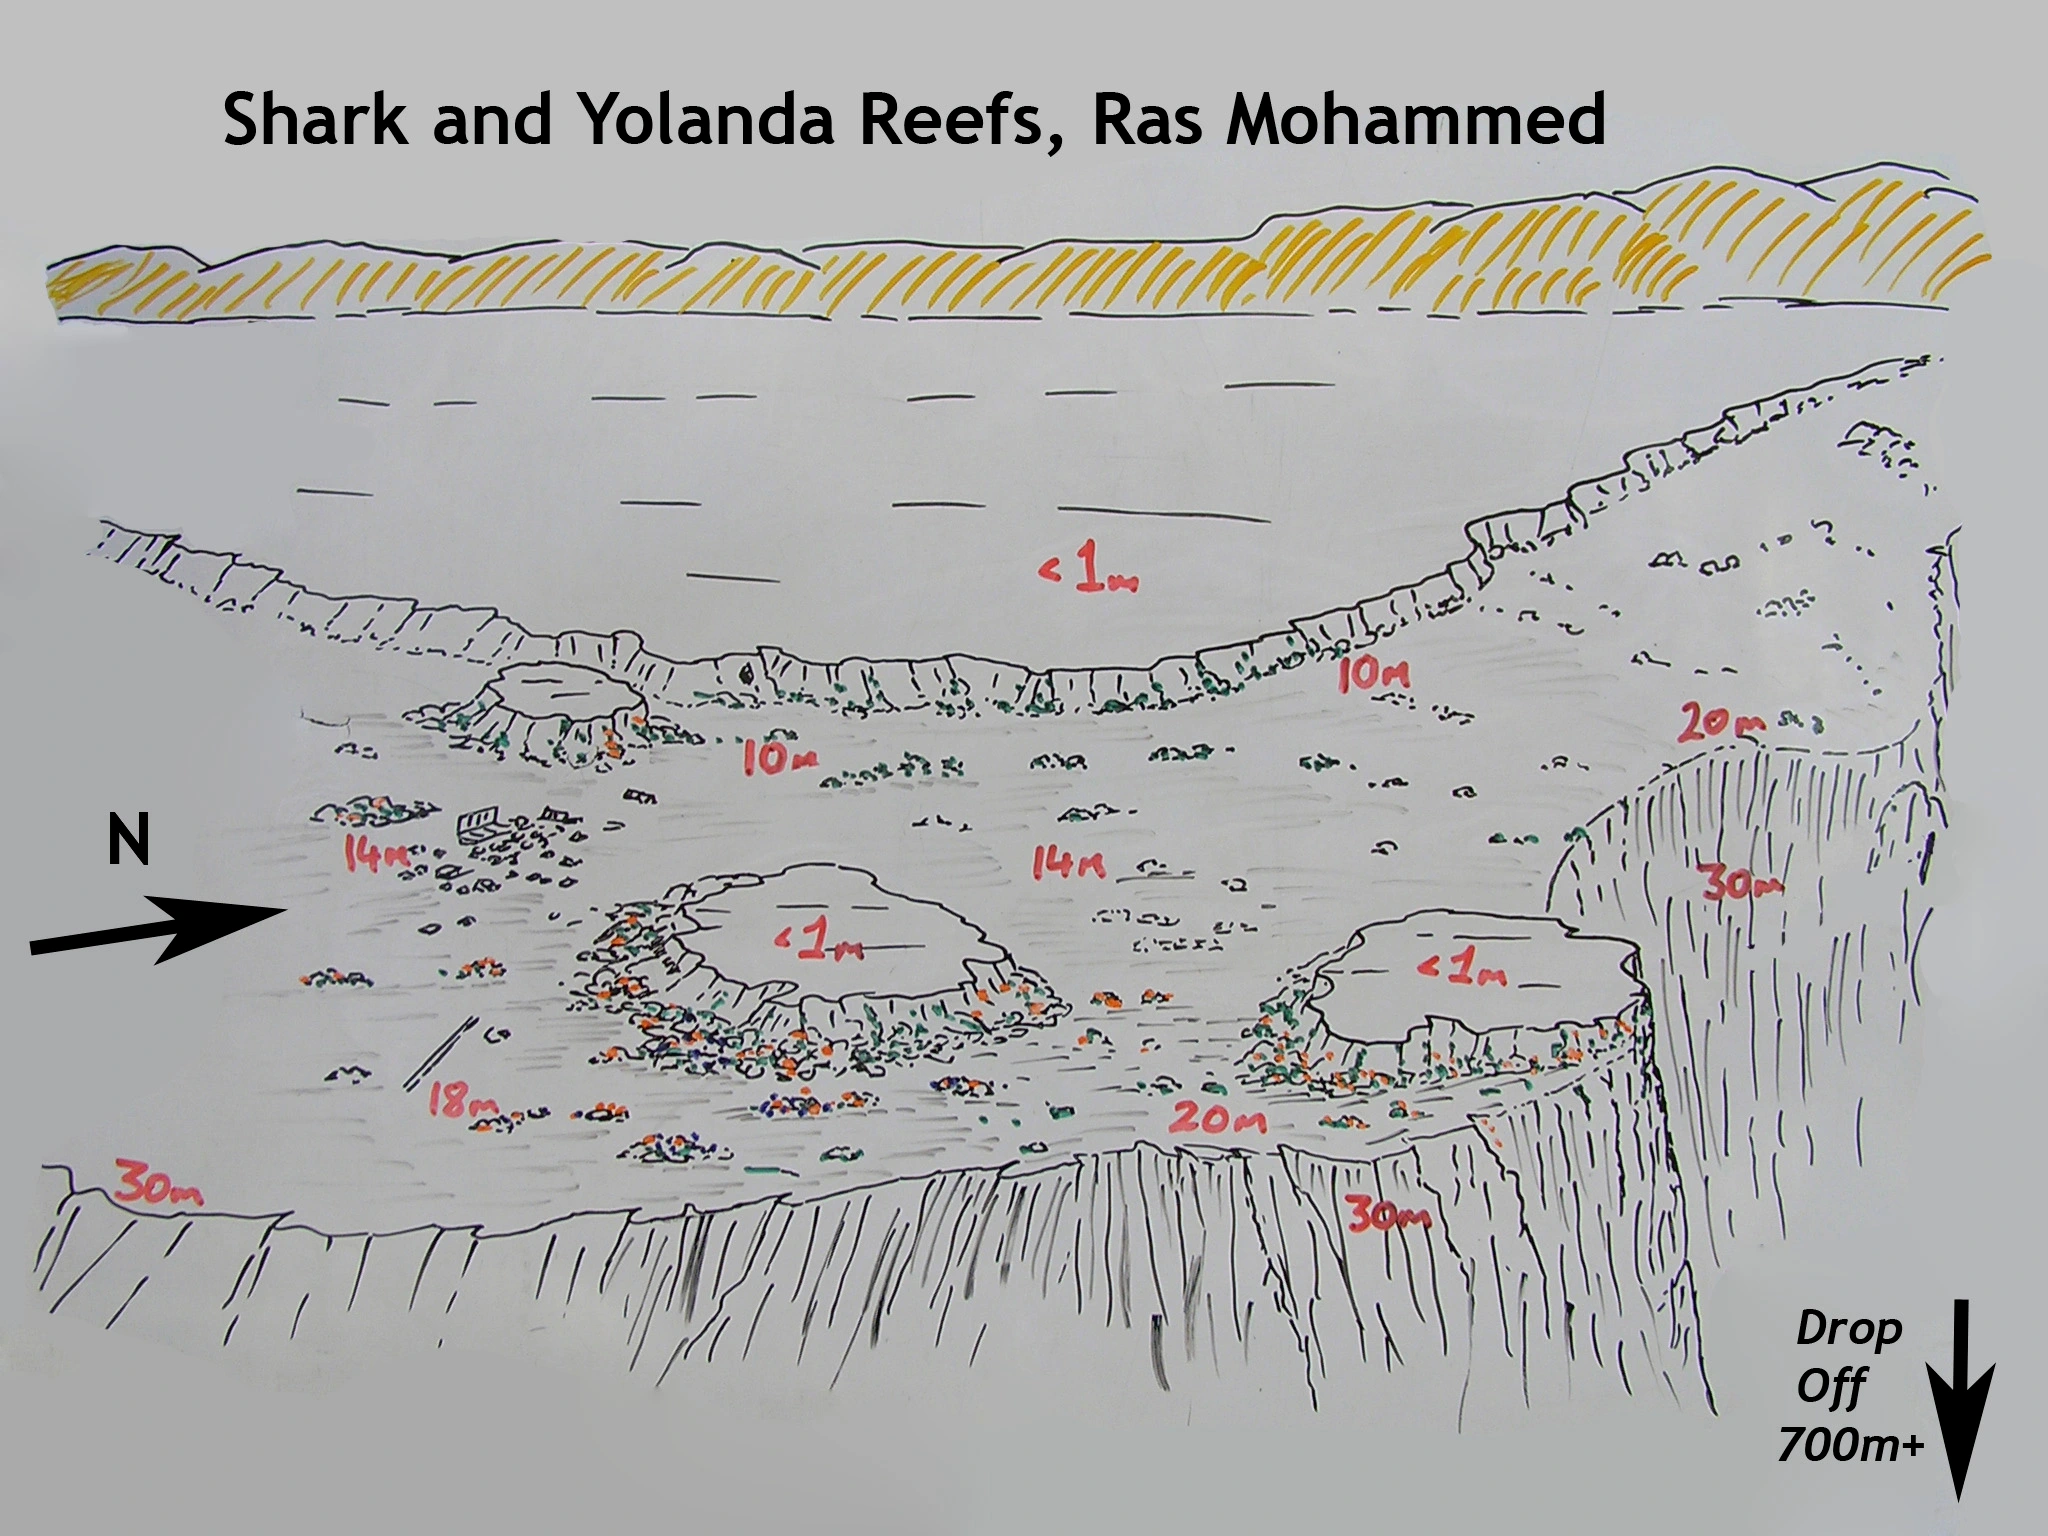 Shark and Yolanda Reefs, Ras Mohammed
<1m
10m
20m
10m
14m
14m
30m
N
<1m
<1m
18m
20m
30m
30m
Drop
Off
700m+